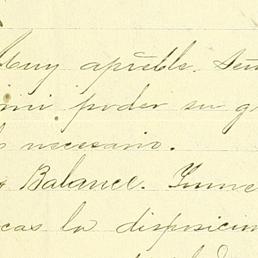 Muy apreble. Señ
mi poder su g
necesario.
Balance. Inme
la disposicion